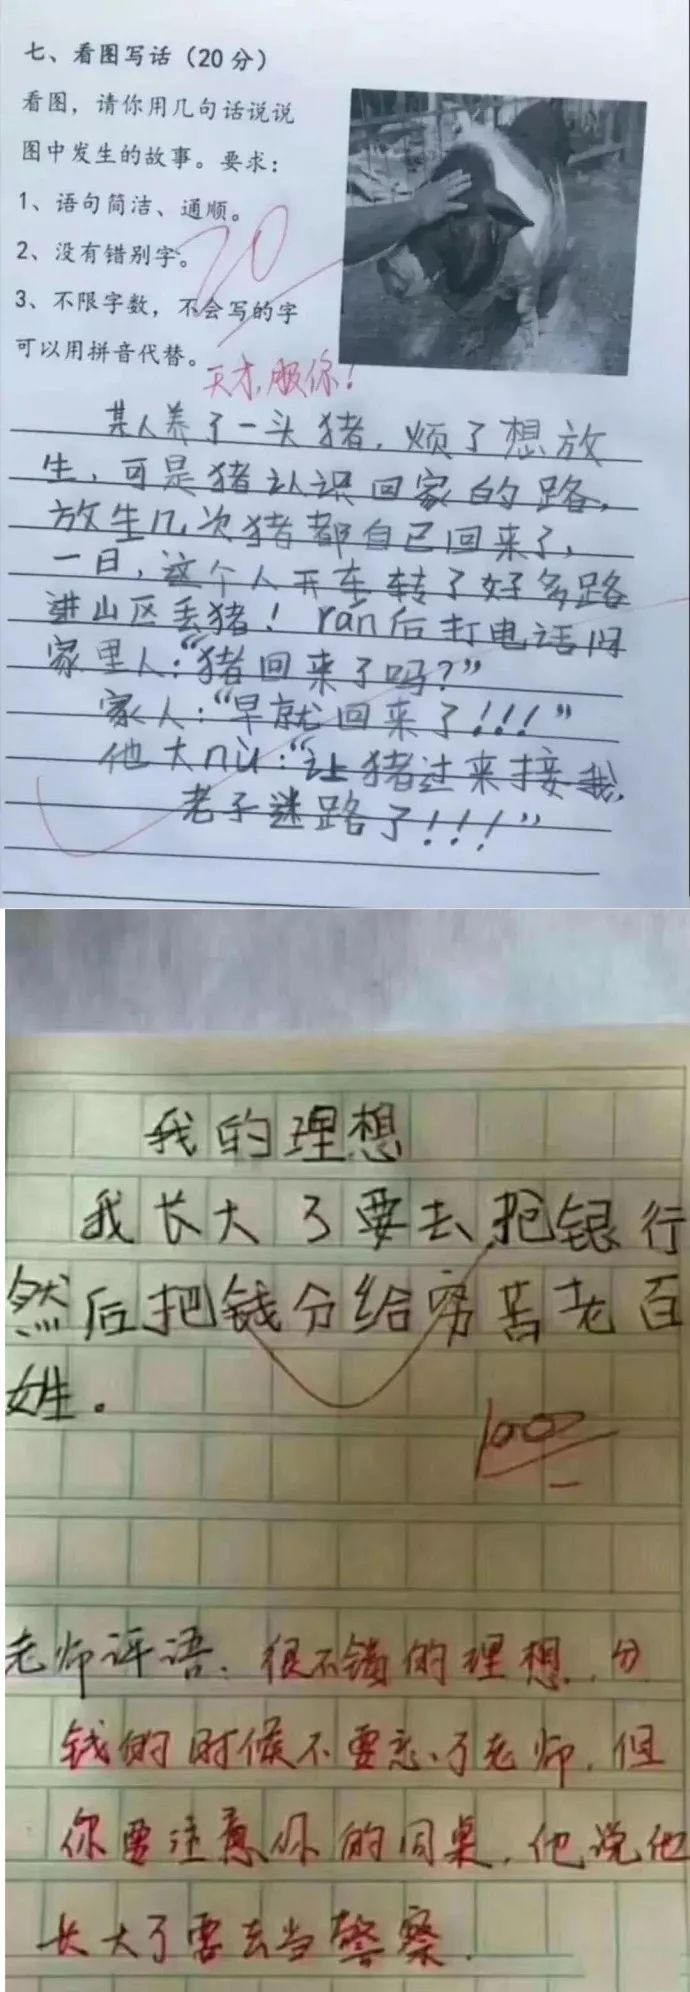 七、看图写话（20分）
看图，请你用几句话说说
图中发生的故事。要求：
1、语句简洁、通顺。
2、没有错别字。
3、不限字数，不会写的字
可以用拼音代替。
20
天才，服你！
某人养了一头猪，烦了想放
生，可是猪认识回家的路，
放生几次猪都自己回来了，
一日，这个人开车转了好多路
进山区丢猪！rán后打电话问
家里人：“猪回来了吗？”
家人：“早就回来了！！！”
他大nù：“让猪过来接我，
老子迷路了！！！”
我的理想
我长大了要去抢银行
然后把钱分给穷苦老百
姓。
100
老师评语：很不错的理想，分
钱的时候不要忘了老师，但
你要注意你的同桌，他说他
长大了要去当警察.